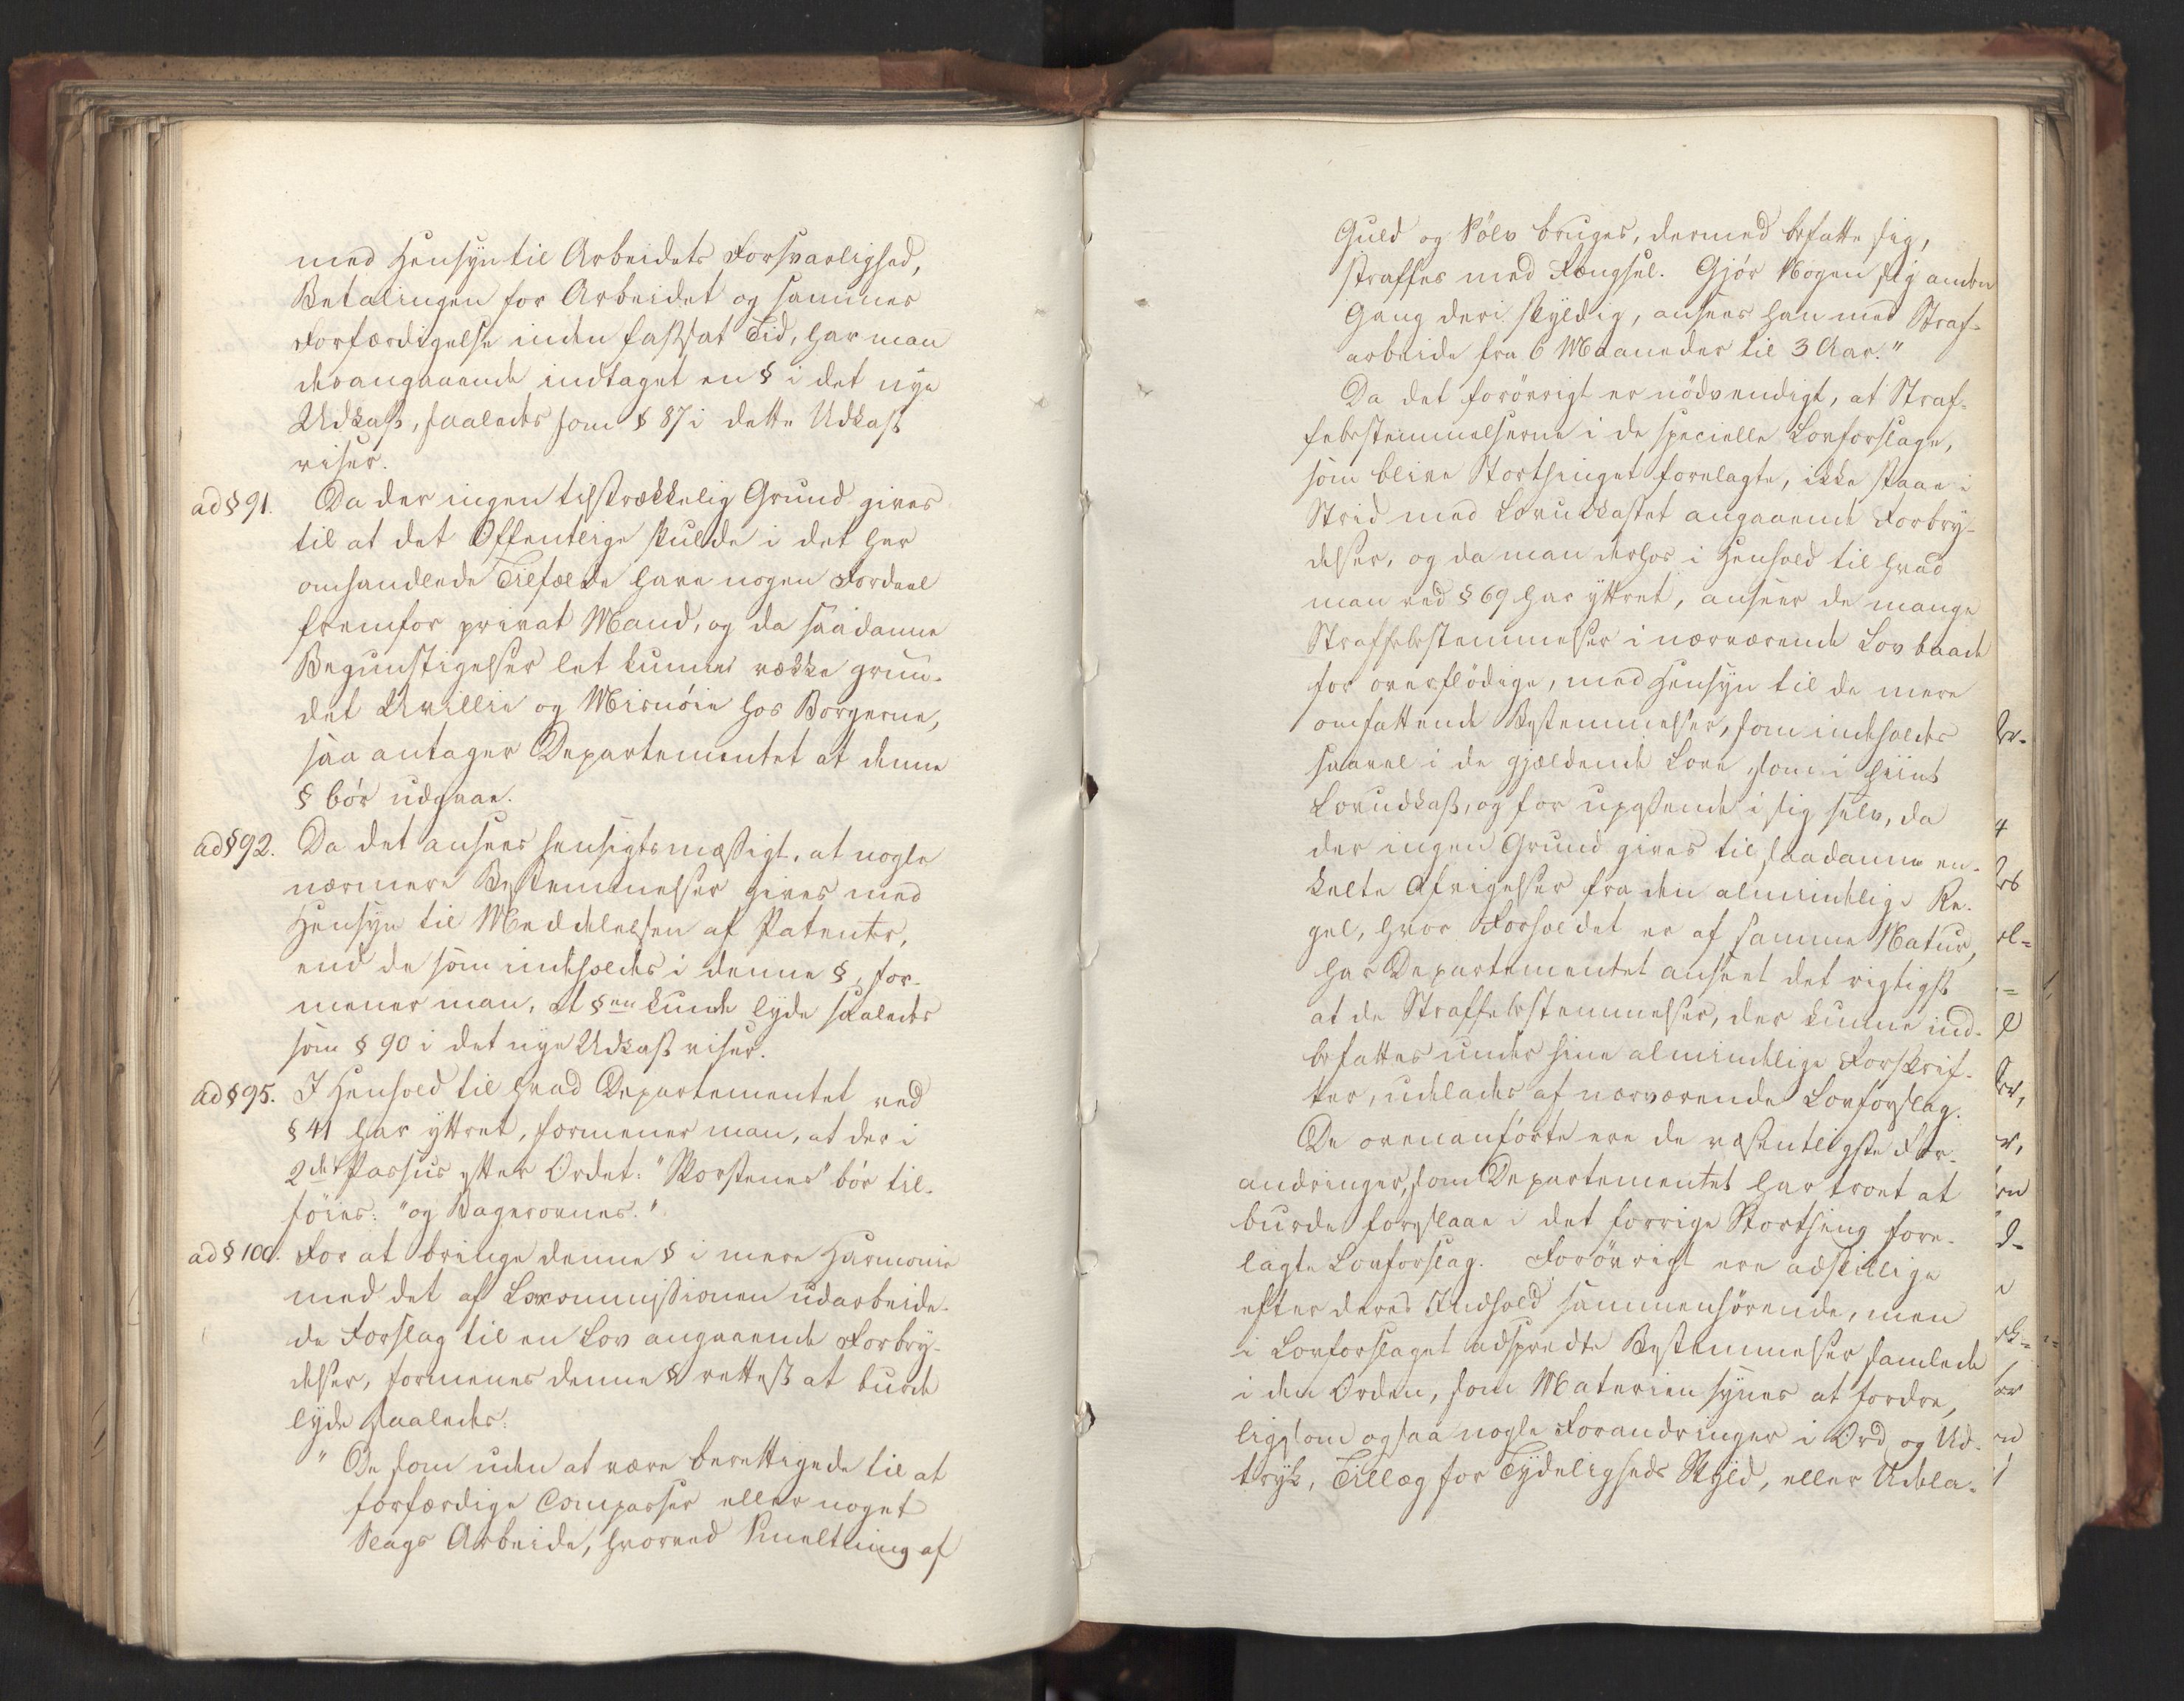 med Hensyn til Arbeidets Forsvarlighed,
Betalingen for Arbeidet og sammes
Forfærdigelse inden fastsat Tid, har man
desangaaende indtaget en § i det nye
Udkast, saaledes som § 87 i dette Udkast
viser.
ad § 91. Da der ingen tilstrækkelig Grund gives
til at det Offentlige skulde i det her
omhandlede Tilfælde have nogen Fordeel
fremfor privat Mand, og da saadanne
Begunstigelser let kunne vække grun-
det Uvillie og Misnöie hos Borgerne,
saa antager Departementet at denne
§ bör udgaae.
ad § 92. Da det ansees hensigtsmæssigt, at nogle
nærmere Bestemmelser gives med
Hensyn til Meddelelsen af Patenter,
end de som indeholdes i denne §, for-
mener man, at §en kunde lyde saaledes
som § 90 i det nye Udkast viser.
ad § 95. I Henhold til hvad Departementet ved
§ 41 har yttret, formener man, at der i
2det Passus efter Ordet: "Skorstenes" bör til-
föies: "og Bagerovnes."
ad § 100. For at bringe denne § i mere Harmonie
med det af Lovcommissionen udarbeide-
de Forslag til en Lov angaaende Forbry-
delser, formenes denne § rettest at burde
lyde saaledes:
"De som uden at være berettigede til at
forfærdige Compasser eller noget
Slags Arbeide, hvorved Smeltning af
Guld og Sölv bruges, dermed befatte sig,
straffes med Fængsel. Gjör Nogen sig anden
Gang deri skyldig, ansees han med Straf-
arbeide fra 6 Maaneder til 3 Aar."
Da det forövrigt er nödvendigt, at Straf-
febestemmelserne i de specielle Lovforslage,
som blive Storthinget forelagte, ikke staae i
Strid med Lovudkastet angaaende Forbry-
delser, og da man derhos i Henhold til hvad
man ved § 69 har yttret, anseer de mange
Straffebestemmelser i nærværende Lov baade
for overflödige, med Hensyn til de mere
omfattende Bestemmelser, som indeholdes
saavel i de gjældende Love, som i hiint
Lovudkast, og for upassende i sig selv, da
der ingen Grund gives til saadanne en-
kelte Afvigelser fra den almindelige Re-
gel, hvor Forholdet er af samme Natur,
har Departementet anseet det rigtigst
at de Straffebestemmelser, der kunne ind-
befattes under hine almindelige Forskrif-
ter, udelades af nærværende Lovforslag.
De ovenanförte ere de væsentligste For-
andringer, som Departementet har troet at
burde foreslaae i det forrige Storthing fore-
lagte Lovforslag. Forövrigt ere adskillige
efter deres Indhold sammenhörende, men
i Lovforslaget adspredte Bestemmelser samlede
i den Orden, som Materien synes at fordre,
ligesom ogsaa nogle Forandringer i Ord og Ud-
tryk, Tillæg for Tydeligheds Skyld, eller Udela-